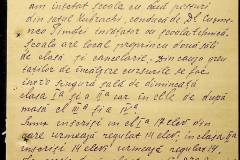 am infiintat școala cu două posturi
din satul Kubrachi, condusă de Dl Cosme-
nco Timbei învățător cu școala tehnică.
Școala are local propriu cu două săli
de clasă și cancelarie. Din cauza greu
tăților de încălzire cursurile se fac
într'o singură sală de dimineață
clasa Iª și a IIª iar în zile de după
masă cl IIIª și a IVª
Sunt inscriși in clª Iª 17 elevi din
care urmează regulat 14 elevi, in clasa IIª
inscriși 14 elevi urmează regulat 14,